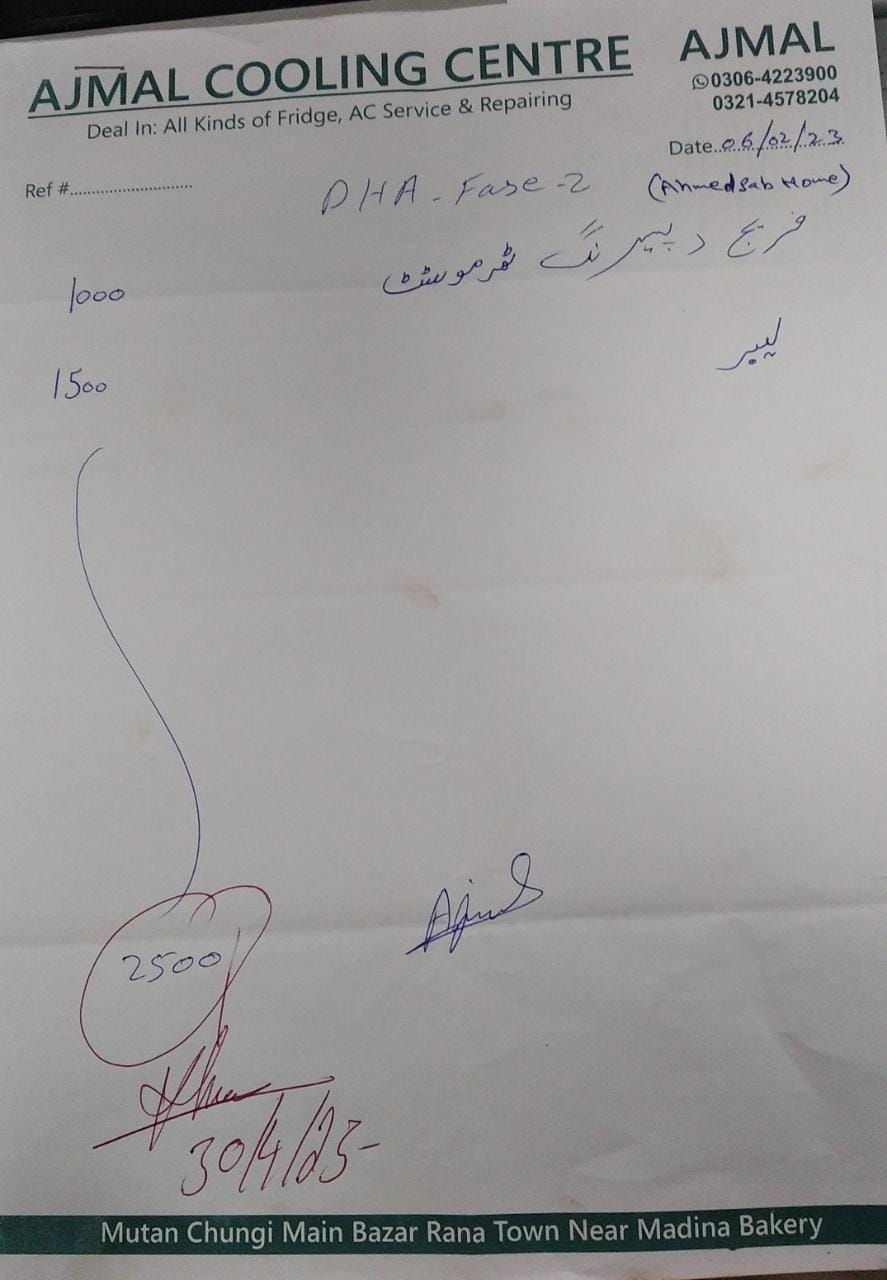 AJMAL COOLING CENTRE
Deal In: All Kinds of Fridge, AC Service & Repairing
AJMAL
0306-4223900
0321-4578204
Date..06/02/23
Ref #............................
DHA - Fase - 2 (Ahmed Sab Home)
فریج رپیرنگ تھرموسٹٹ 1000
لیبر 1500
2500
Ajmal
30/4/23-
Mutan Chungi Main Bazar Rana Town Near Madina Bakery